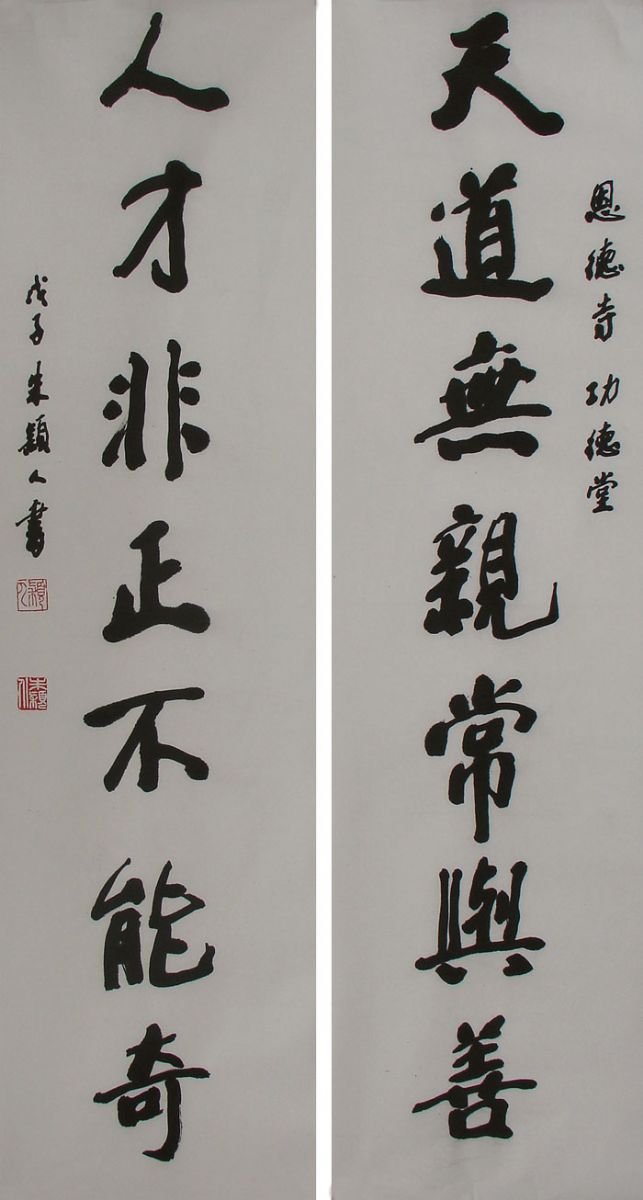 恩德寺 功德堂
天道無親常與善
人才非正不能奇
戊子朱穎人書
穎人
朱穎人